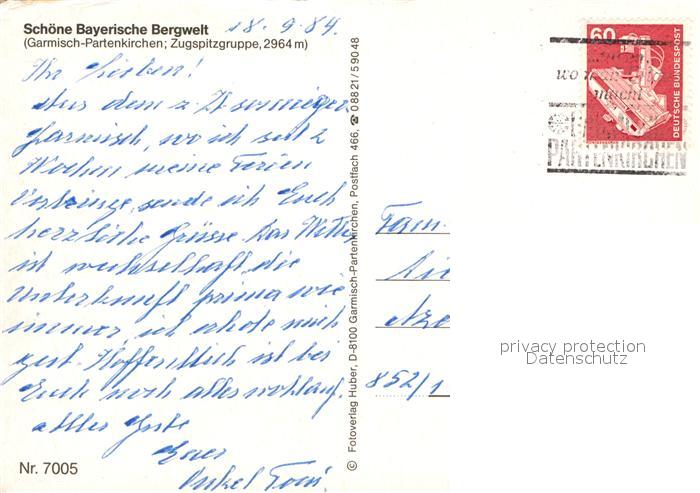 Schöne Bayerische Bergwelt
(Garmisch-Partenkirchen; Zugspitzgruppe, 2964 m)
18.9.84.
Ihr Lieben!
Aus dem z. Zt. sonnigen
Garmisch, wo ich seit 2
Wochen meine Ferien
verbringe, sende ich Euch
herzliche Grüsse. Das Wetter
ist wechselhaft, die
Unterkunft prima wie
immer, ich erhole mich
gut. Hoffentlich ist bei
Euch noch alles wohlauf.
Alles Gute
Euer
Onkel Toni
Nr. 7005
© Fotoverlag Huber, D-8100 Garmisch-Partenkirchen, Postfach 466, ☎ 08821/59048
60
DEUTSCHE BUNDESPOST
PARTENKIRCHEN
Fam.
852/1
privacy protection
Datenschutz